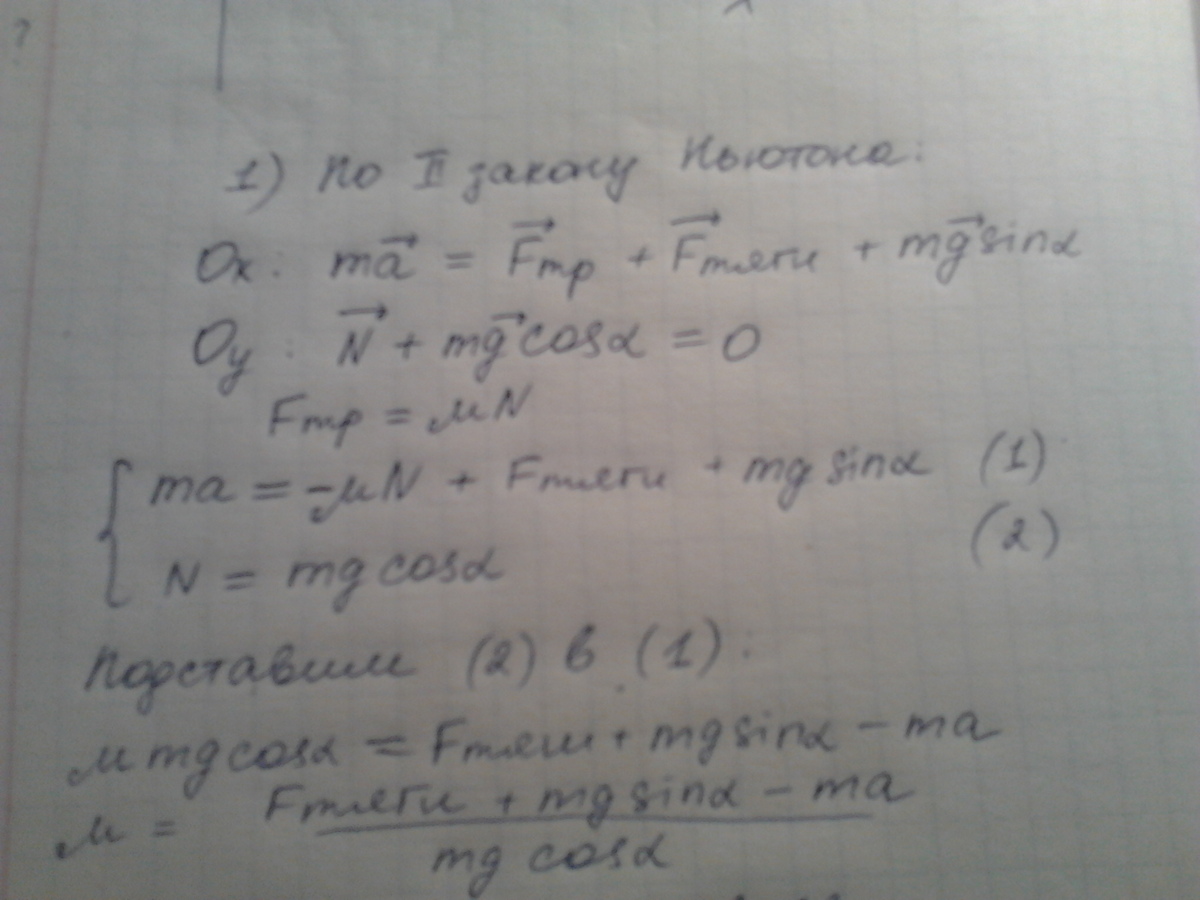 ?
1) По II закону Ньютона:
Ox: ma⃗ = F⃗тр + F⃗тяги + mg⃗ sinα
Oy: N⃗ + mg⃗ cosα = 0
Fтр = μN
{ ma = -μN + Fтяги + mg sinα (1)
N = mg cosα (2)
Подставим (2) в (1):
μ mg cosα = Fтяги + mg sinα - ma
μ = Fтяги + mg sinα - ma
mg cosα